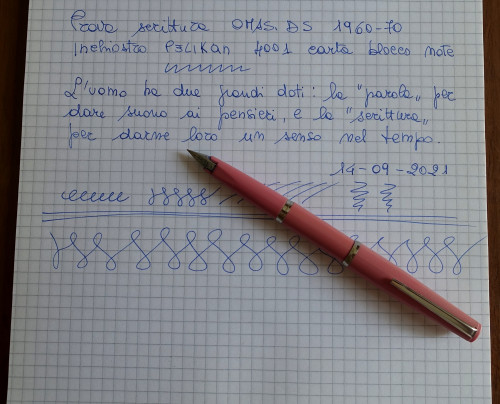 Prova scrittura OMAS. DS 1960-70
Inchiostro PELIKAN 4001 carta blocco note
L'uomo ha due grandi doti: la "parola" per
dare suono ai pensieri, e la "scrittura"
per darne loro un senso nel tempo.
14-09-2021